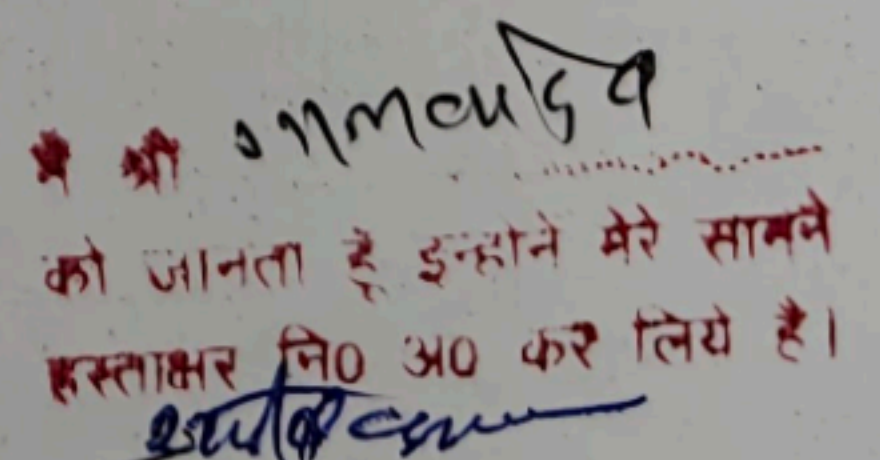 मैं श्री
को जानता हूँ इन्होने मेरे सामने
हस्ताक्षर नि0 अ0 कर लिये है।